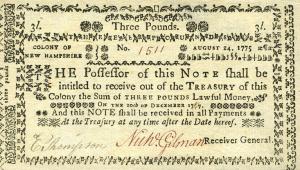 3l. Three Pounds. 3l.
COLONY OF NEW HAMPSHIRE No. 1511 AUGUST 24, 1775
THE Possessor of this NOTE shall be
intitled to receive out of the TREASURY of this
Colony the Sum of THREE POUNDS Lawful Money,
ON THE 20th OF DECEMBER
And this NOTE shall be received in all Payments
at the Treasury at any time after the Date hereof.
E Thompson Nich Gilman Receiver General